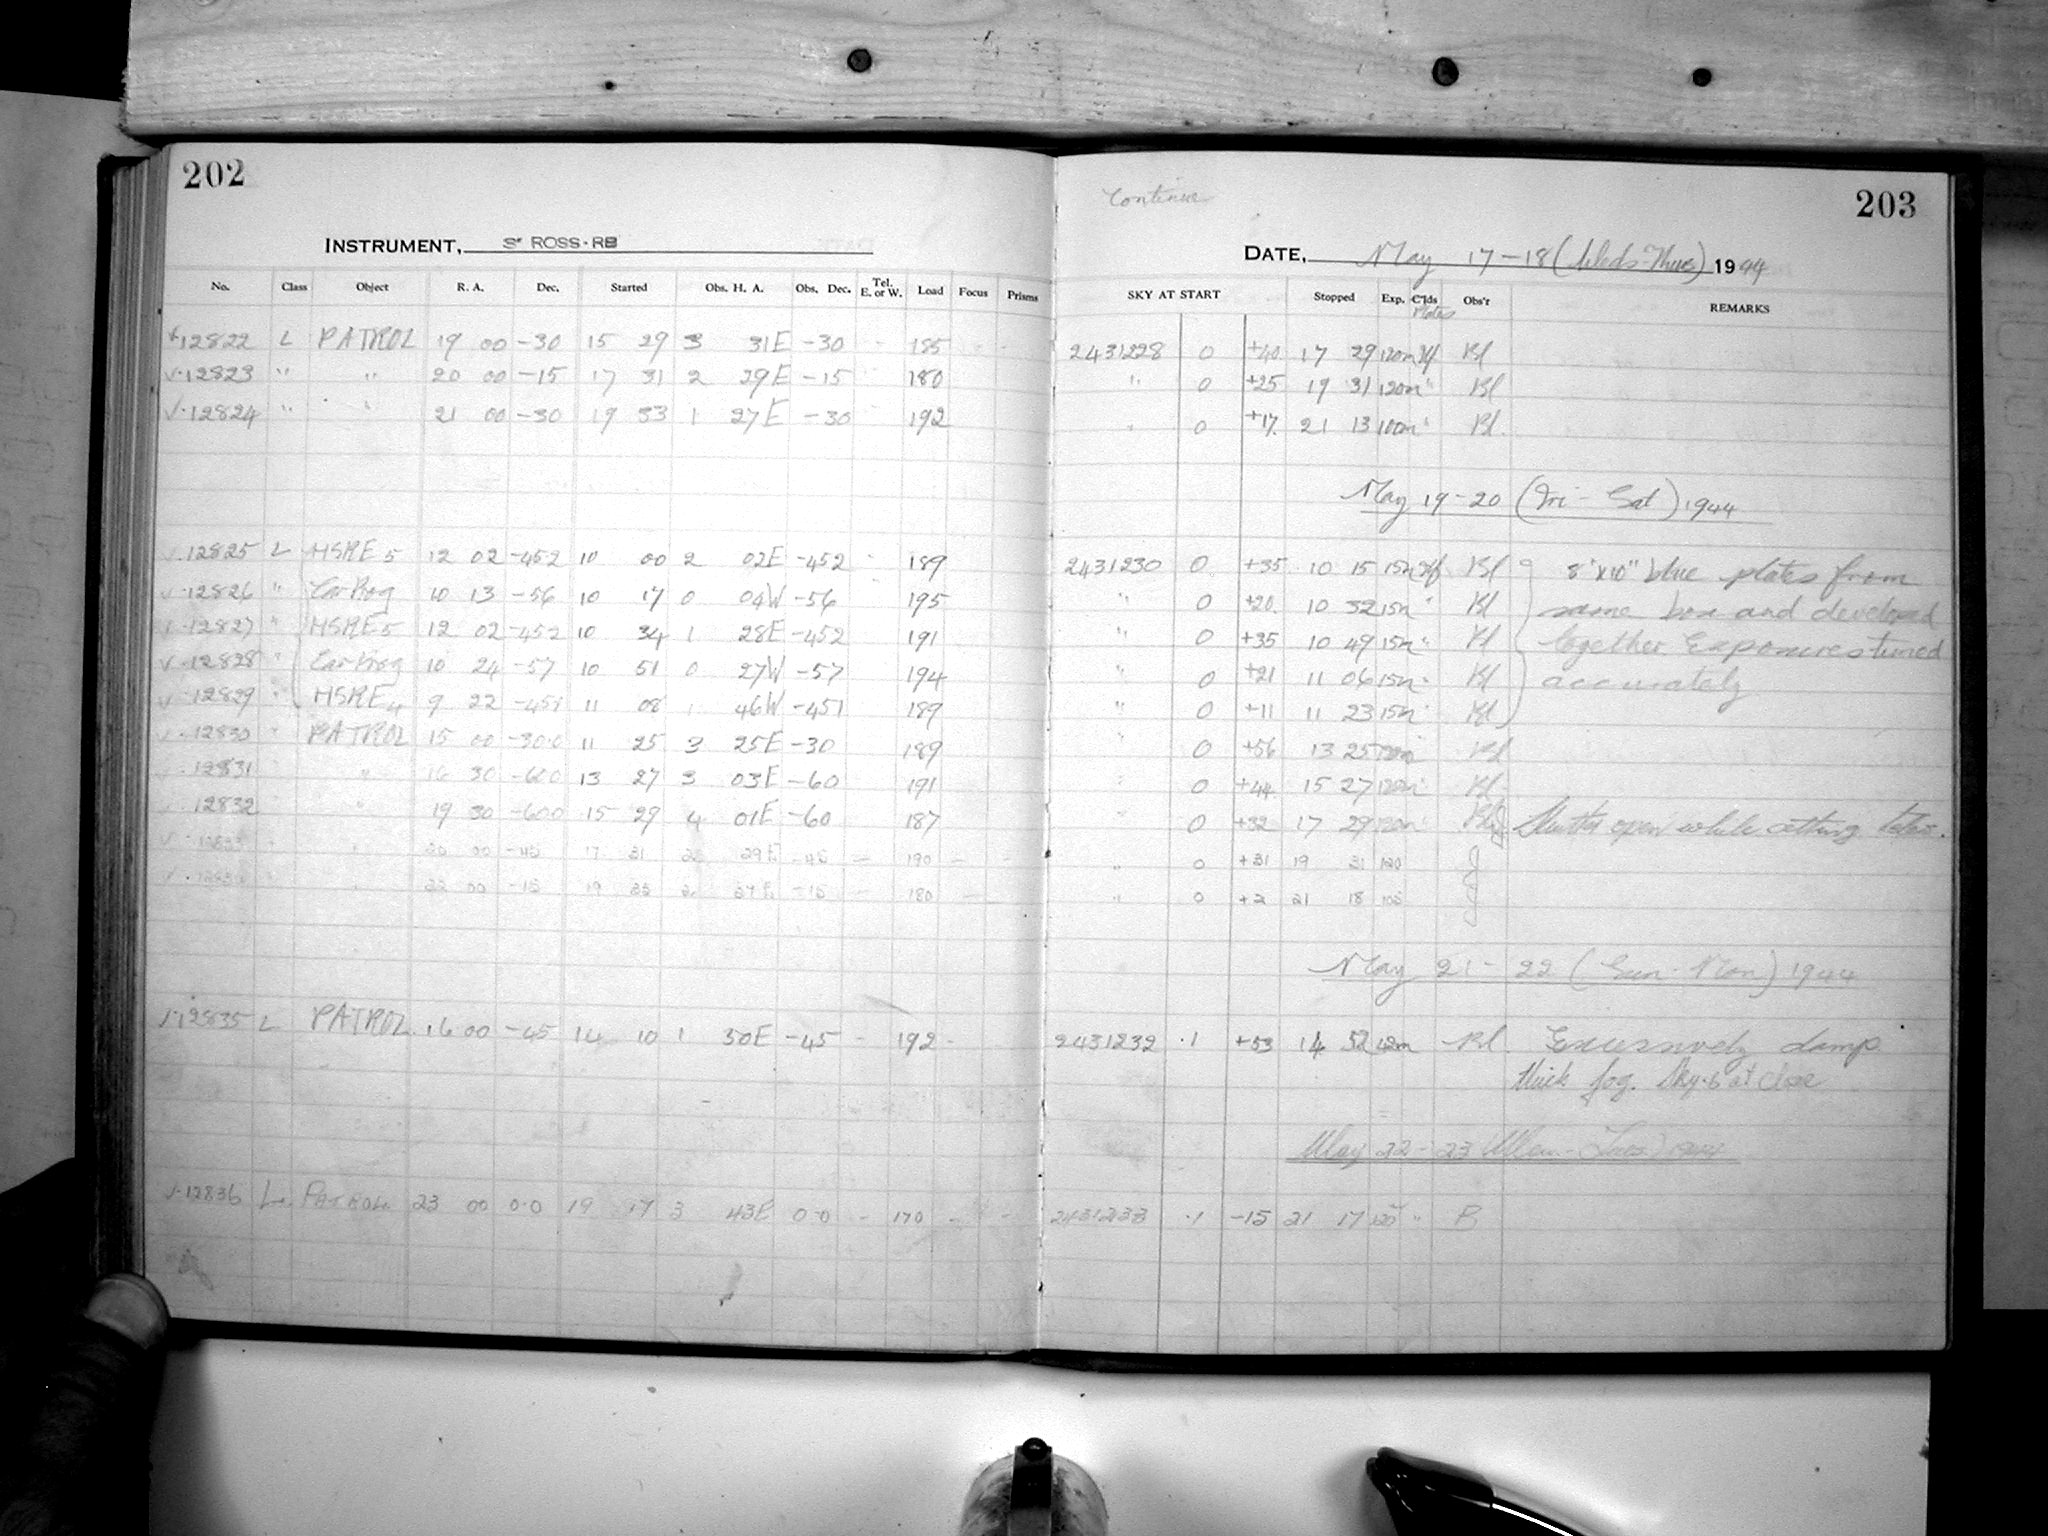 202
INSTRUMENT, 3" ROSS-RB
No. Class Object R. A. Dec. Started Obs. H. A. Obs. Dec. Tel. E. or W. Load Focus Prisms
12822 L PATROL 19 00 -30 15 29 3 31E -30 185
12823 " " 20 00 -15 17 31 2 29E -15 180
12824 " " 21 00 -30 19 33 1 27E -30 192
12825 L HSME5 12 02 -452 10 00 2 02E -452 189
12826 " Car Prog 10 13 -56 10 17 0 04W -56 195
12827 " HSME5 12 02 -452 10 34 1 28E -452 191
12828 " Car Prog 10 24 -57 10 51 0 27W -57 194
12829 " HSME4 9 22 -451 11 08 1 46W -451 189
12830 " PATROL 15 00 -300 11 25 3 25E -30 189
12831 " 16 30 -600 13 27 3 03E -60 191
12832 " 19 30 -600 15 29 4 01E -60 187
12833 " 20 00 -45 17 31 29E -45 190
" 22 00 -15 19 33 2 -15 180
12835 L PATROL 16 00 -45 14 10 1 50E -45 192
12836 L. PATROL 23 00 0.0 19 17 3 43E 0.0 170
Continue
203
DATE, May 17-18 (Weds-Thurs) 1944
SKY AT START Stopped Exp. C'lds Plates Obs'r REMARKS
2431228 0 +40 17 29 120m Bl
" 0 +25 19 31 120m " Bl
" 0 +17 21 13 100m " Bl
May 19-20 (Fri-Sat) 1944
2431230 0 +35 10 15 15m Bl 8"x10" blue plates from
" 0 +20 10 32 15m " Bl same box and developed
" 0 +35 10 49 15m " Bl together Exposures timed
" 0 +21 11 06 15m " Bl accurately
" 0 +11 11 23 15m " Bl
" 0 +56 13 25 120m Bl
" 0 +44 15 27 120m " Bl
" 0 +32 17 29 120m Shutter open while setting
" 0 +31 19 31 120 J
" 0 +2 21 18 105 J
May 21-22 (Sun-Mon) 1944
2431232 .1 +53 14 52 42m Bl Excessively damp
thick fog. Sky .6 at close
May 22-23 (Mon-Tues) 1944
2431233 .1 -15 21 17 120 " B